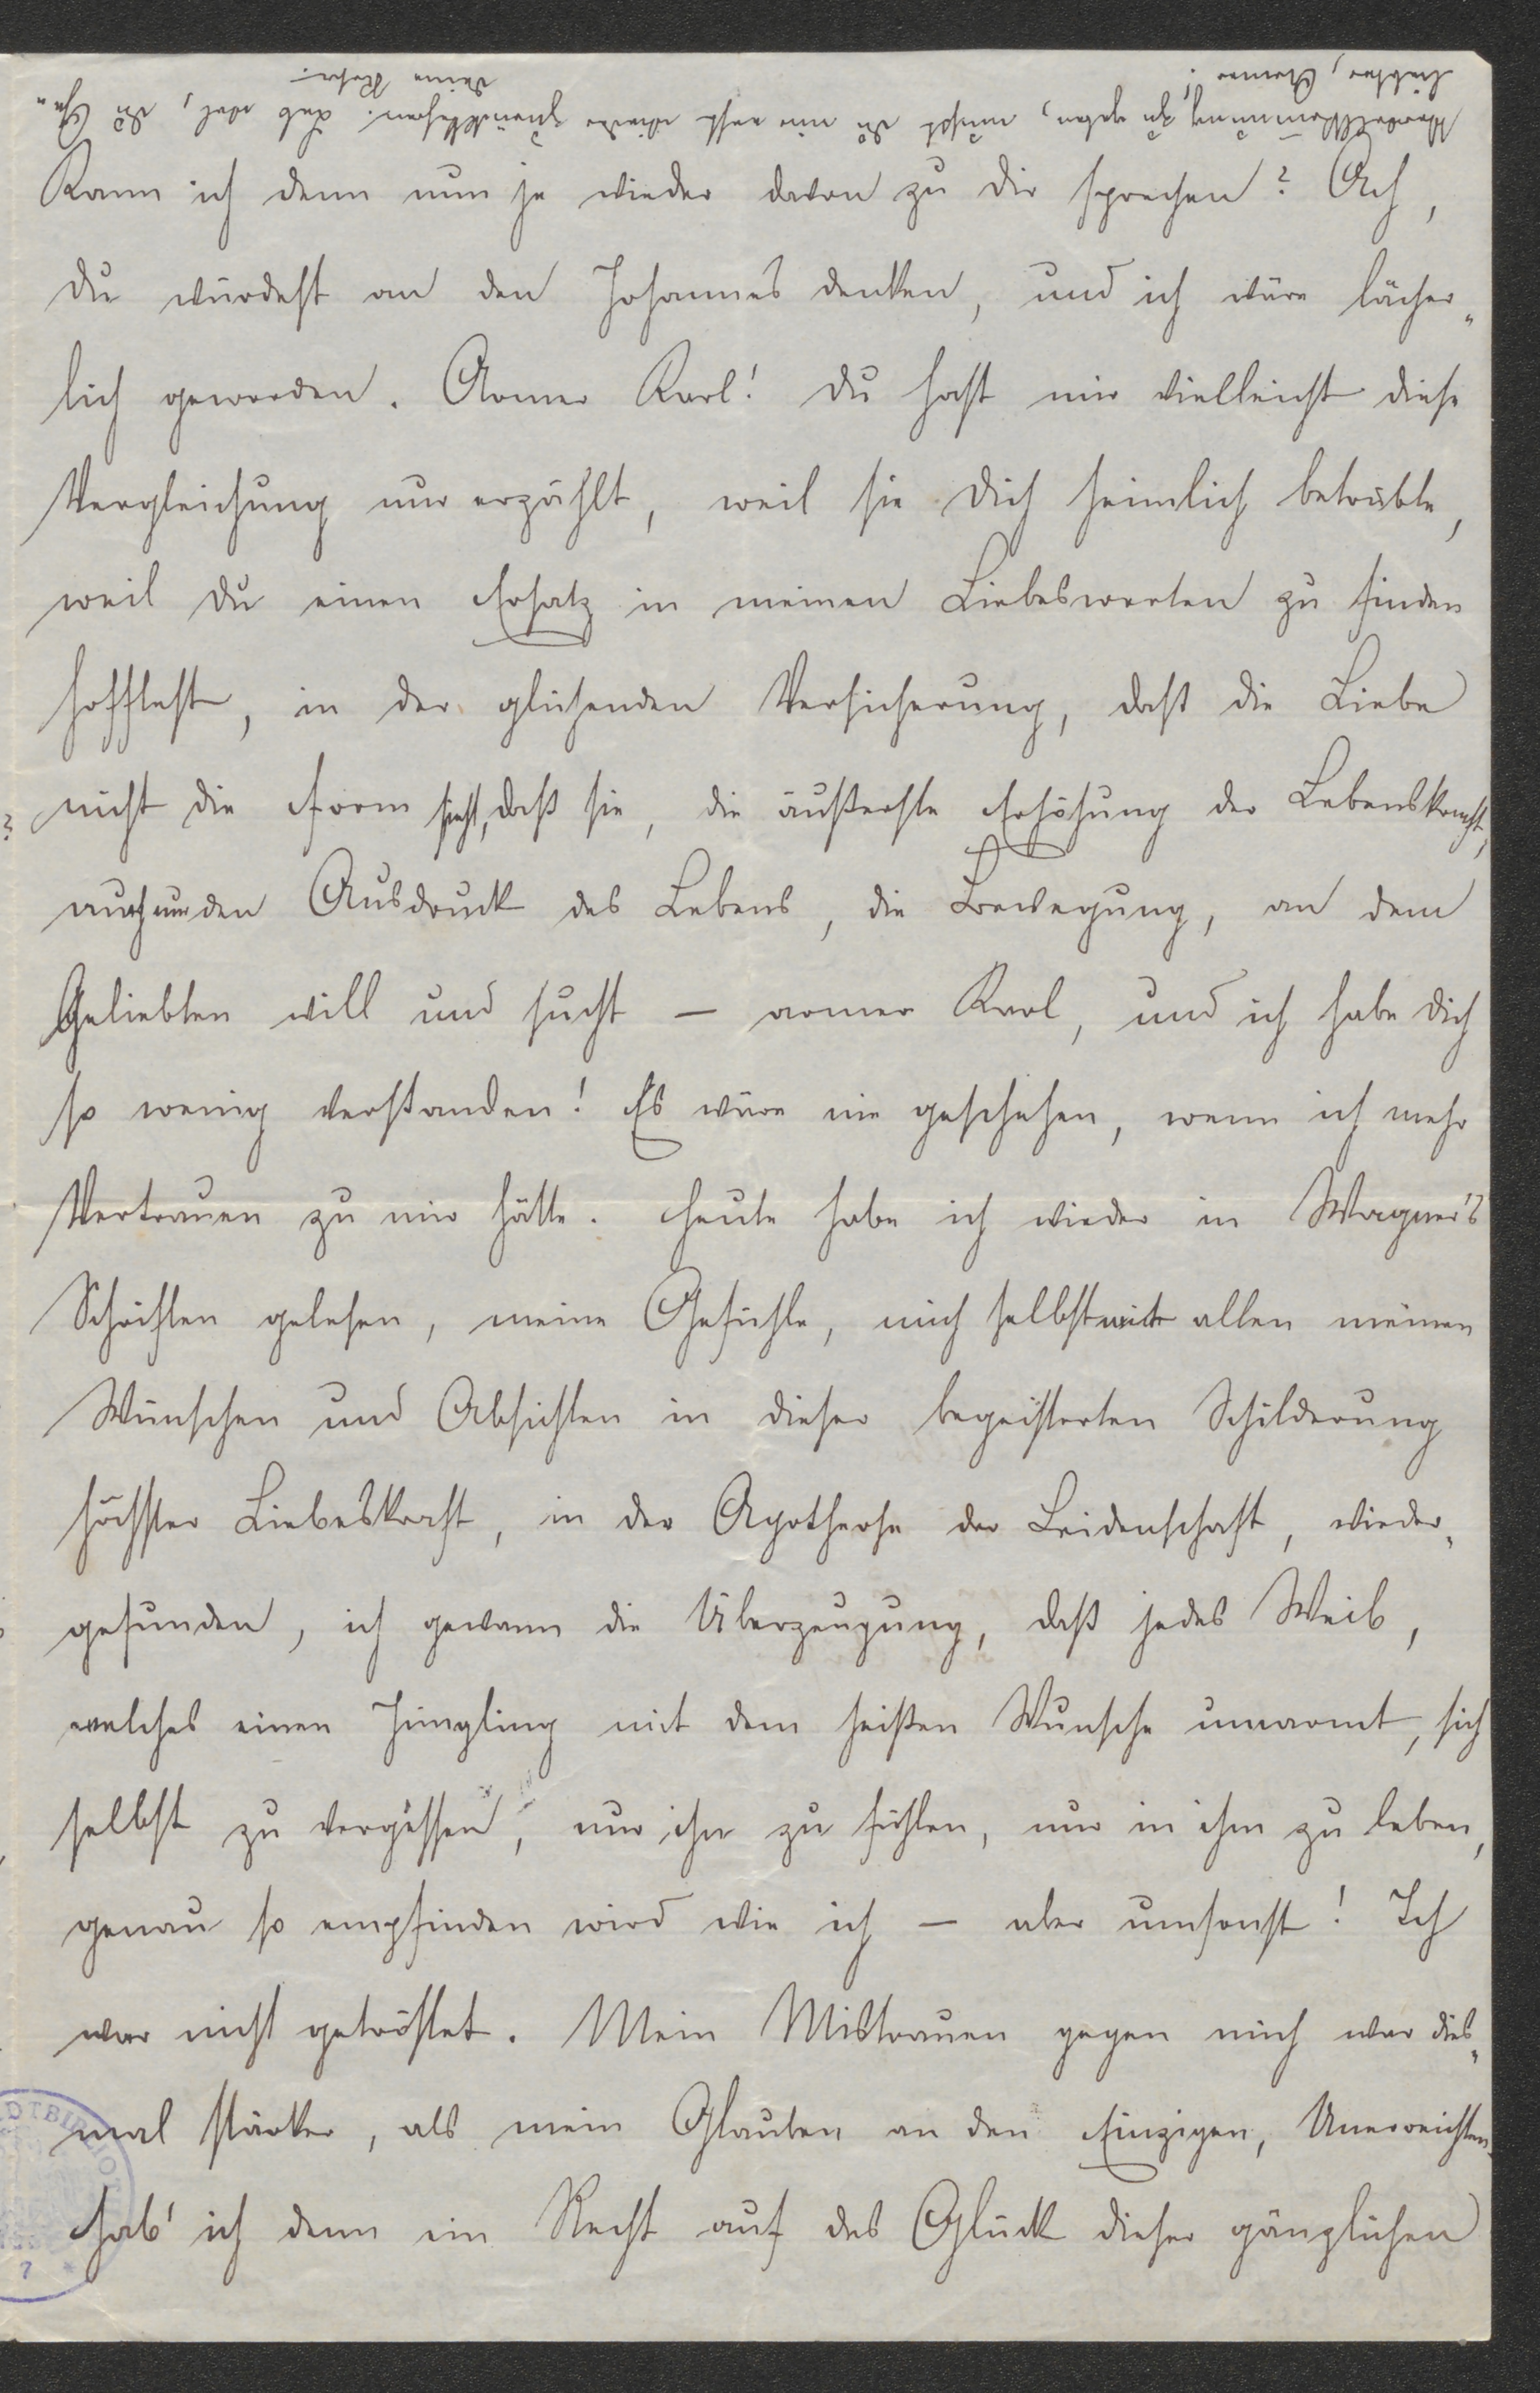 Kann ich denn nun je wieder davon zu dir sprechen? Ach,
du würdest an den Johannes denken, und ich wäre lächer„
lich geworden. Armer Karl! du hast mir vielleicht diese
Vergleichung nur erzählt, weil sie dich heimlich betrübte,
weil du einen Ersatz in meinen Liebesworten zu finden
hofftest, in der glühenden Versicherung, daß die Liebe
nicht die Form sieht, daß sie, die äußerste Erhöhung der Lebenskraft,
auch nur den Ausdruck des Lebens, die Bewegung, an dem
Geliebten will und sucht – armer Karl, und ich habe dich
so wenig verstanden! Es wäre nie geschehen, wenn ich mehr
Vertrauen zu mir hätte. Heute habe ich wieder in Wagner's
Schriften gelesen, meine Gefühle, mich selbst mit allen meinen
Wünschen und Absichten in dieser begeisterten Schilderung
höchster Liebeskraft, in der Apotheose der Leidenschaft, wieder„
gefunden, ich gewann die Überzeugung, daß jedes Weib,
welches einen Jüngling mit dem heißen Wunsche umarmt, sich
selbst zu vergessen, nur ihn zu fühlen, nur in ihm zu leben,
genau so empfinden wird wie ich – aber umsonst! Ich
war nicht getröstet. Mein Mistrauen gegen mich war dies„
mal stärker, als mein Glauben an den Einzigen, Unerreichten.
Hab' ich denn ein Recht auf das Glück dieser gänzlichen
zu geben, mußt du mir erst wieder zurückkehren. Leb wol, du Ge„
liebter, Armer!
deine Rosa.